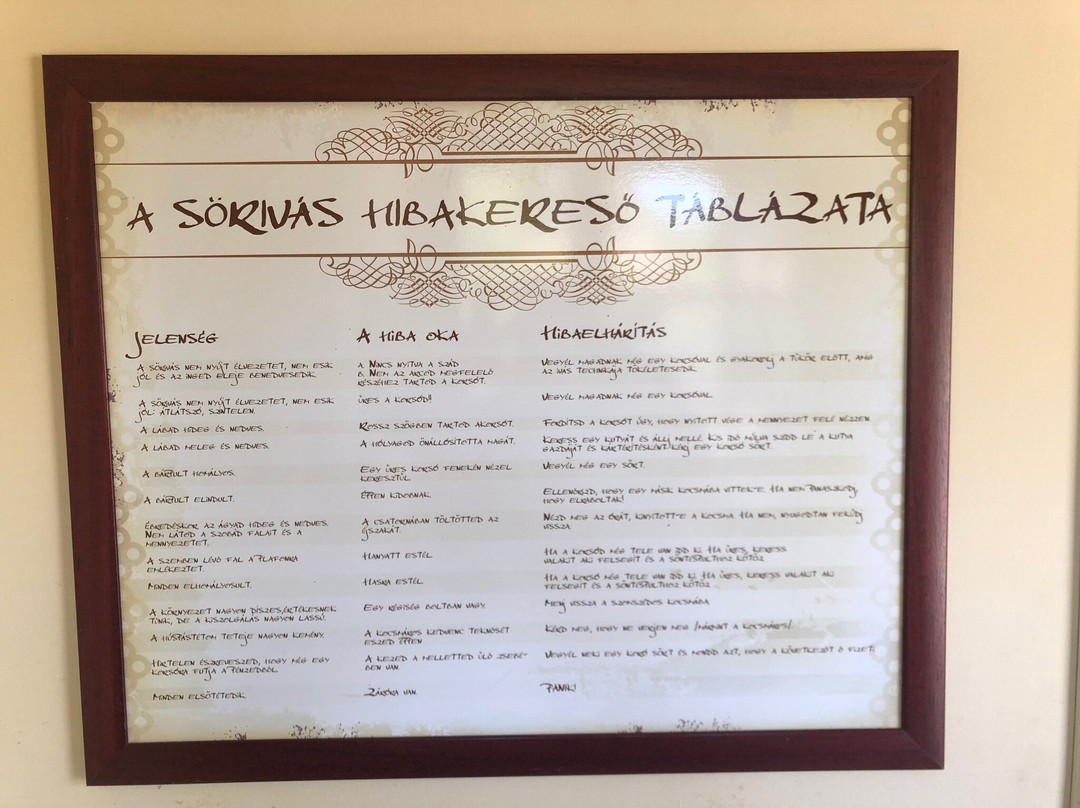 A SÖRIVÁS HIBAKERESŐ TÁBLÁZATA
JELENSÉG
A HIBA OKA
HIBAELHÁRÍTÁS
A SÖRIVÁS NEM NYÚJT ÉLVEZETET, NEM ESIK
JÓL ÉS AZ INGED ELEJE BENEDVESEDIK.
A. NINCS NYITVA A SZÁD
B. NEM AZ ARCOD MEGFELELŐ
RÉSZÉHEZ TARTOD A KORSÓT.
VEGYÉL MAGADNAK MÉG EGY KORSÓVAL ÉS GYAKOROLJ A TÜKÖR ELŐTT, AMÍG
AZ IVÁS TECHNIKÁJA TÖKÉLETESEDIK.
A SÖRIVÁS NEM NYÚJT ÉLVEZETET, NEM ESIK
JÓL: ÁTLÁTSZÓ, SZÍNTELEN.
ÜRES A KORSÓD!!
VEGYÉL MAGADNAK MÉG EGY KORSÓVAL.
A LÁBAD HIDEG ÉS NEDVES.
ROSSZ SZÖGBEN TARTOD AKORSÓT.
FORDÍTSD A KORSÓT ÚGY, HOGY NYITOTT VÉGE A MENNYEZET FELÉ NÉZZEN.
A LÁBAD MELEG ÉS NEDVES.
A HÓLYAGOD ÖNÁLLÓSÍTOTTA MAGÁT.
KERESS EGY KUTYÁT ÉS ÁLLJ MELLÉ. KIS IDŐ MÚLVA SZIDD LE A KUTYA
GAZDÁJÁT ÉS KÁRTÉRÍTÉSKÉNT KÉRJ EGY KORSÓ SÖRT.
A BÁRPULT HOMÁLYOS.
EGY ÜRES KORSÓ FENEKÉN NÉZEL
KERESZTÜL.
VEGYÉL MÉG EGY SÖRT.
A BÁRPULT ELINDULT.
ÉPPEN KIDOBNAK.
ELLENŐRIZD, HOGY EGY MÁSIK KOCSMÁBA VITTEK-E. HA NEM PANASZKODJ,
HOGY ELRABOLTAK!
ÉBREDÉSKOR AZ ÁGYAD HIDEG ÉS NEDVES.
NEM LÁTOD A SZOBÁD FALAIT ÉS A
MENNYEZETET.
A CSATORNÁBAN TÖLTÖTTED AZ
ÉJSZAKÁT.
NÉZD MEG AZ ÓRÁT, KINYITOTT-E A KOCSMA. HA NEM, NYUGODTAN FEKÜDJ
VISSZA.
A SZEMBEN LÉVŐ FAL A PLAFONRA
EMLÉKEZTET.
HANYATT ESTÉL.
HA A KORSÓD MÉG TELE VAN IDD KI. HA ÜRES, KERESS
VALAKIT AKI FELSEGÍT ÉS A SÖNTÉSPULTHOZ KÖTÖZ.
MINDEN ELHOMÁLYOSULT.
HASRA ESTÉL.
HA A KORSÓ MÉG TELE VAN IDD KI. HA ÜRES, KERESS VALAKIT AKI
FELSEGÍT ÉS A SÖNTÉSPULTHOZ KÖTÖZ.
A KÖRNYEZET NAGYON DÍSZES,ÉRTÉKESNEK
TŰNIK, DE A KISZOLGÁLÁS NAGYON LASSÚ.
EGY RÉGISÉG BOLTBAN VAGY.
MENJ VISSZA A SZOMSZÉDOS KOCSMÁBA.
A HÚSPÁSTÉTOM TETEJE NAGYON KEMÉNY.
A KOCSMÁROS KEDVENC TEKNŐSÉT
ESZED ÉPPEN.
KÉRD MEG, HOGY NE VERJEN MEG /MÁRMINT A KOCSMÁROS/.
HIRTELEN ÉSZREVESZED, HOGY MÉG EGY
KORSÓRA FUTJA A PÉNZEDBŐL.
A KEZED A MELLETTED ÜLŐ ZSEBÉ-
BEN VAN.
VEGYÉL NEKI EGY KORSÓ SÖRT ÉS MONDD AZT, HOGY A KÖVETKEZŐT Ő FIZETI.
MINDEN ELSÖTÉTEDIK.
ZÁRÓRA VAN.
PÁNIK!